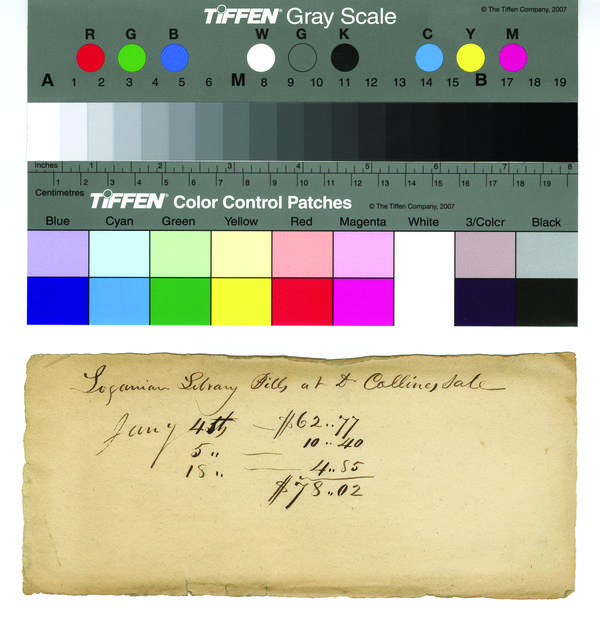 TIFFEN® Gray Scale
© The Tiffen Company, 2007
R G B W G K C Y M
A 1 2 3 4 5 6 M 8 9 10 11 12 13 14 15 B 17 18 19
Inches 1 2 3 4 5 6 7 8
Centimetres 1 2 3 4 5 6 7 8 9 10 11 12 13 14 15 16 17 18 19
TIFFEN® Color Control Patches
© The Tiffen Company, 2007
Blue Cyan Green Yellow Red Magenta White 3/Color Black
Loganian Library Bills at D Collins, Sale
Jany 4th — $62..77
5 .. — 10..40
18 .. — 4..85
$78..02